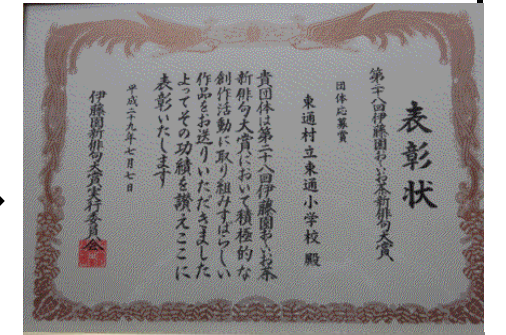 表彰状
第二十八回伊藤園おーいお茶新俳句大賞
団体応募賞
東通村立東通小学校 殿
貴団体は第二十八回伊藤園おーいお茶
新俳句大賞において積極的な
創作活動に取り組みすばらしい
作品をお送りいただきました
よってその功績を讃えここに
表彰いたします
平成二十九年七月七日
伊藤園新俳句大賞実行委員会